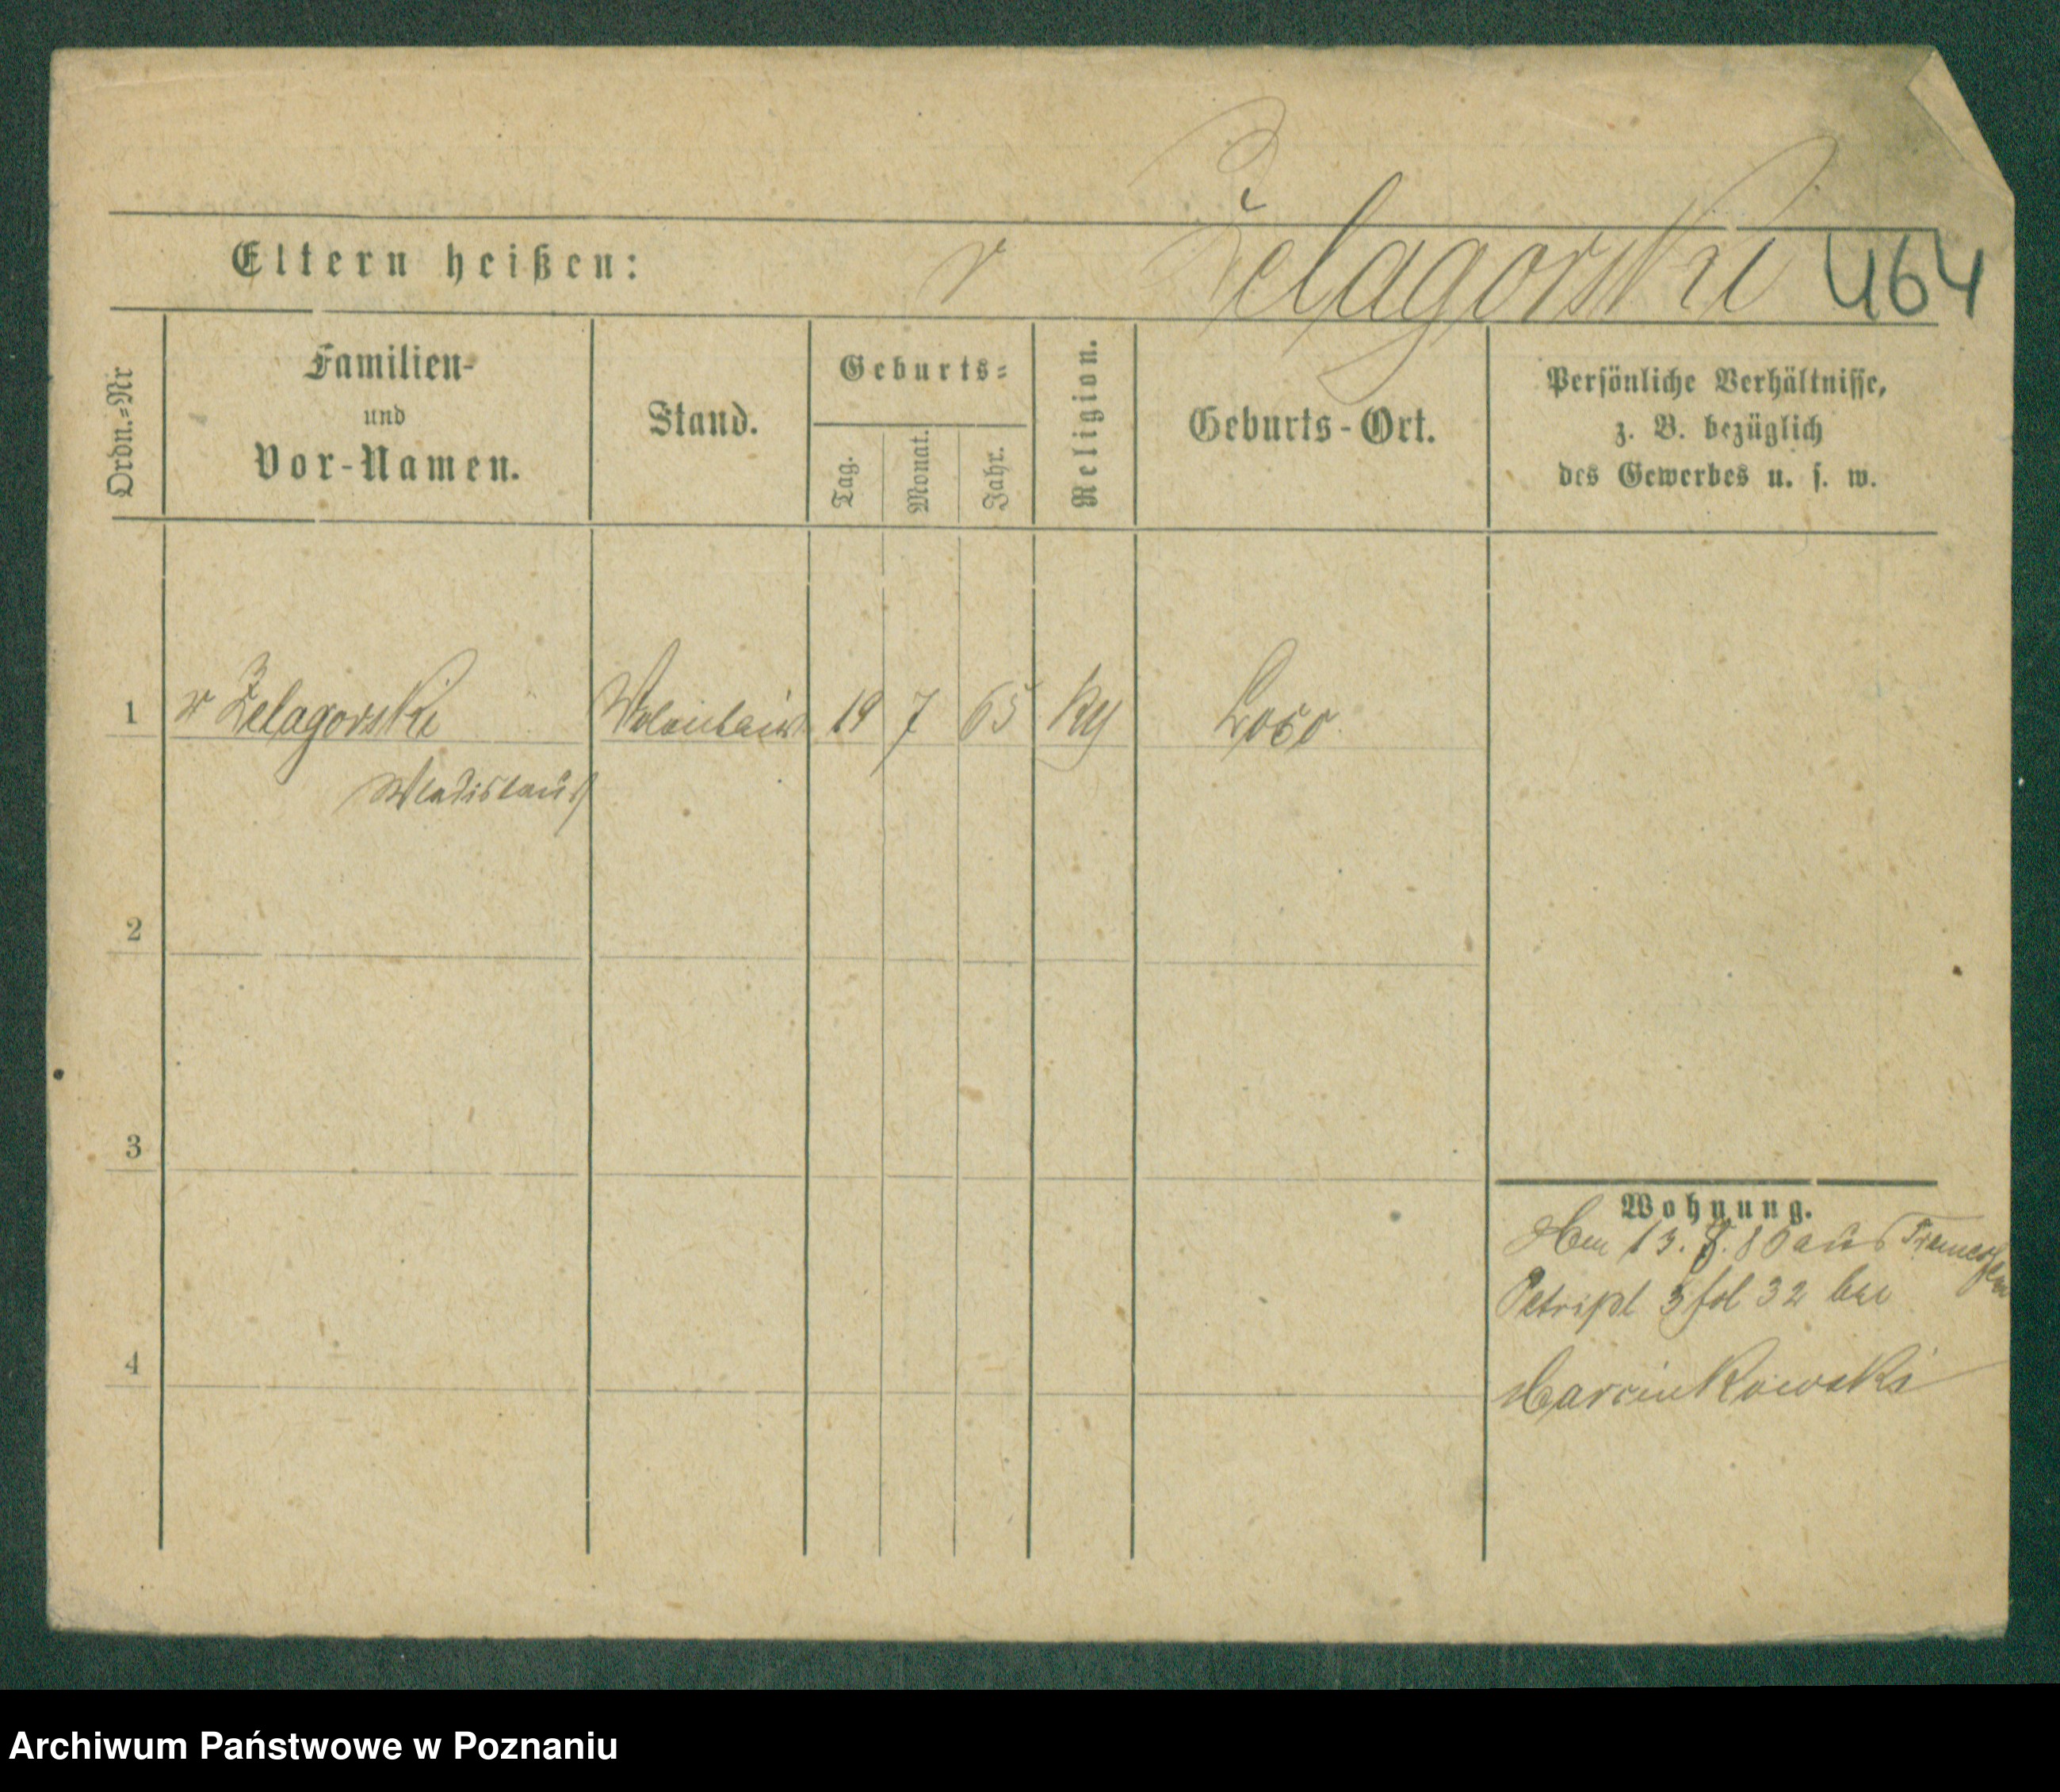 Eltern heißen: v Żelagorski 464
Ordn.=Nr
Familien-
und
Vor-Namen.
Stand.
Geburts=
Tag.
Monat.
Jahr.
Religion.
Geburts-Ort.
Persönliche Verhältnisse,
z. B. bezüglich
des Gewerbes u. s. w.
1 v Żelagorski Volontair 19 7 65 Kg
Wladislaus
2
3
4
Wohnung.
13. 86 aus Tremessen
Petripl 3 fol 32 bei
Marcinkowski
Archiwum Państwowe w Poznaniu